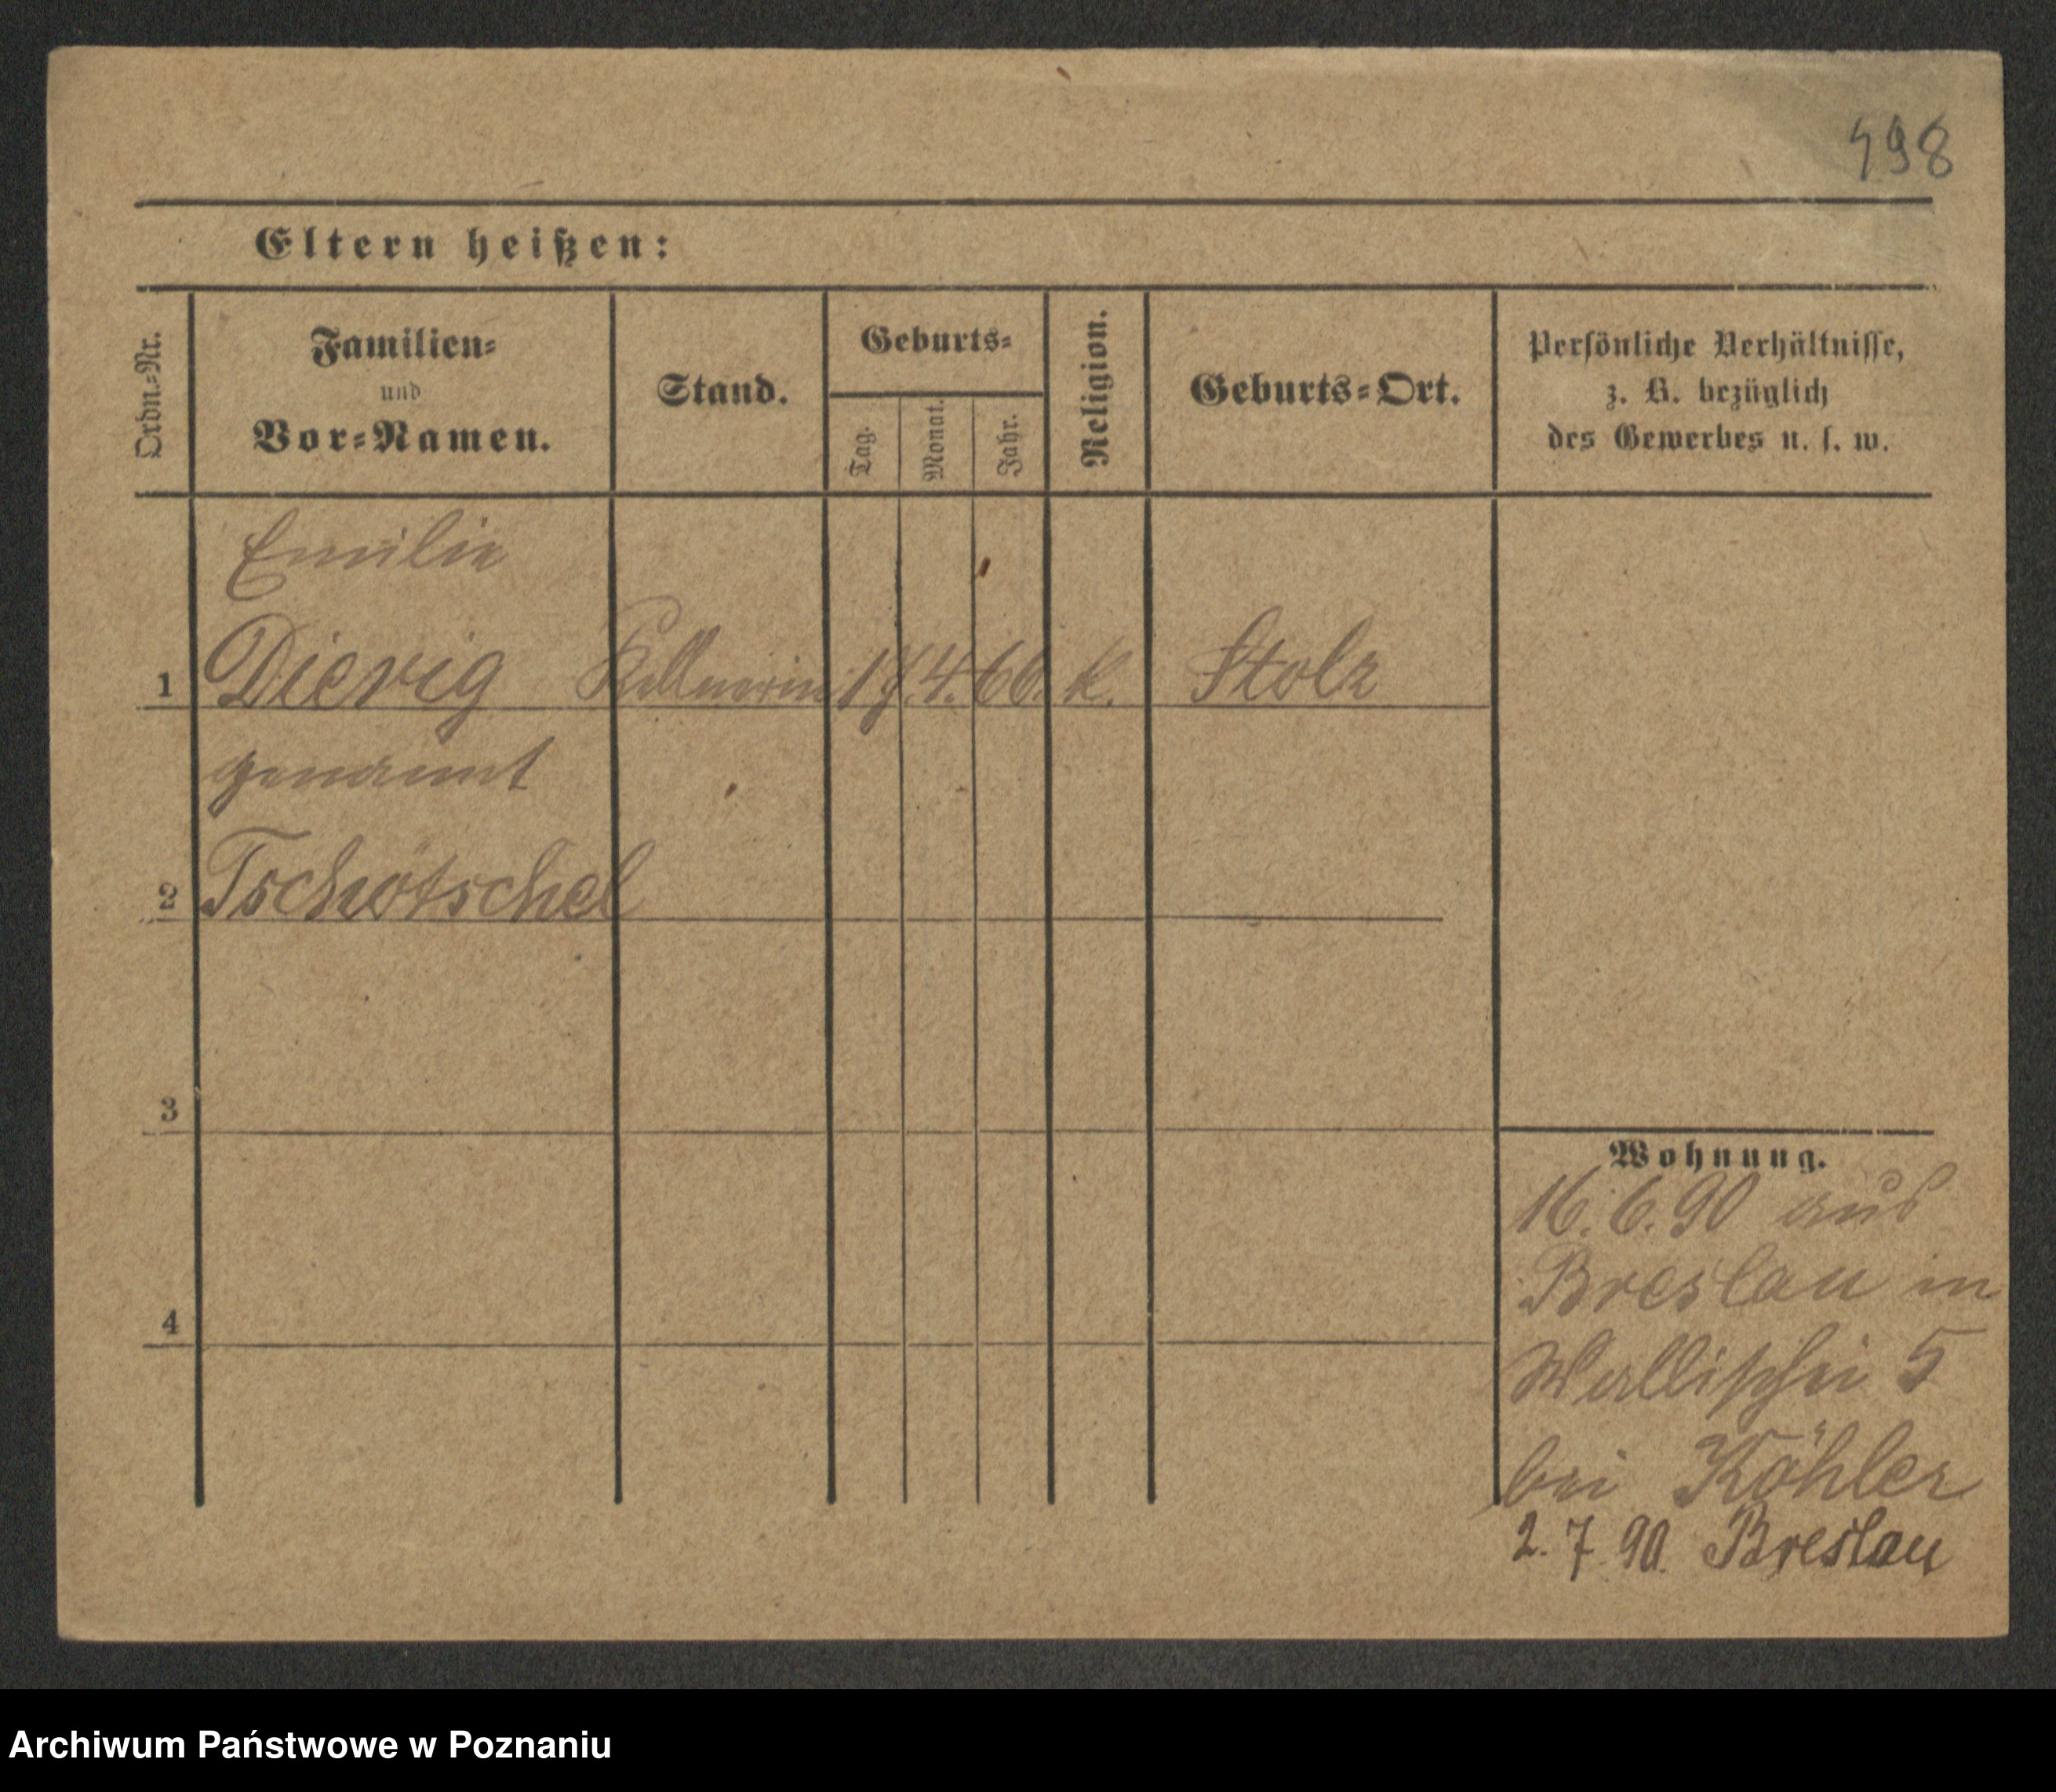 498
Eltern heißen:
Ordn.-Nr.
Familien-
und
Vor-Namen.
Stand.
Geburts-
Tag.
Monat.
Jahr.
Religion.
Geburts-Ort.
Persönliche Verhältnisse,
z. B. bezüglich
des Gewerbes u. s. w.
Emilie
1 Dierig Kellnerin 4. 66. k. Stolz
genannt
2 Tschötschel
3
4
Wohnung.
16. 6. 90 aus
Breslau in
Wallischei 5
bei Köhler
2. 7. 90. Breslau
Archiwum Państwowe w Poznaniu